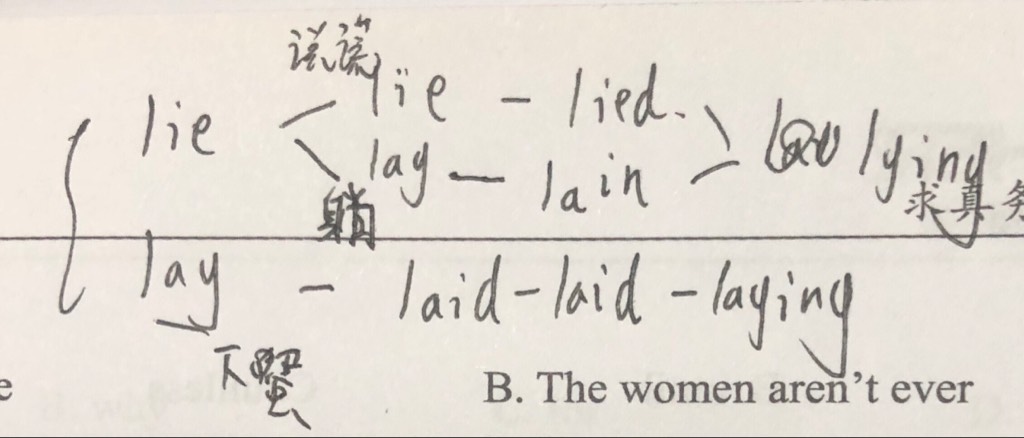 说谎
lie lie - lied.
lay - lain lying
躺
求真务
lay - laid - laid - laying
下蛋
e B. The women aren't ever